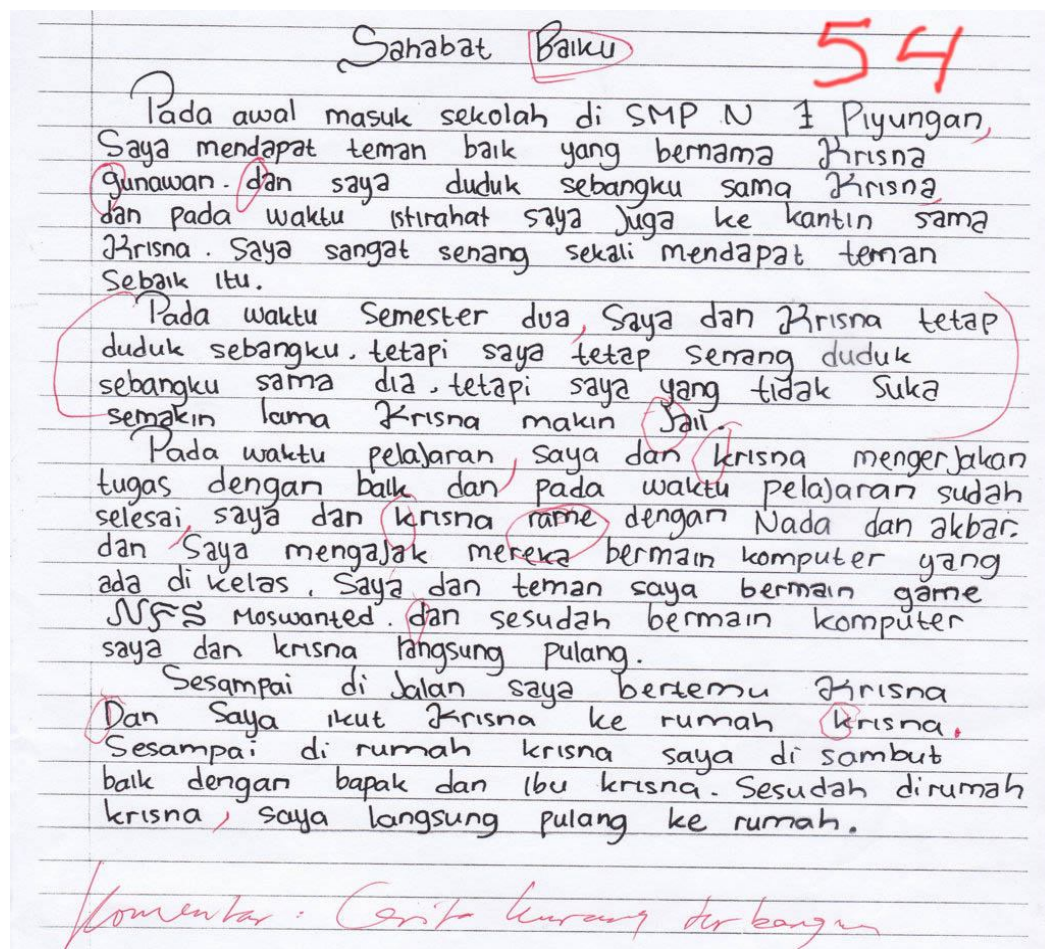 Sahabat Baiku
54
Pada awal masuk sekolah di SMP N 1 Piyungan,
Saya mendapat teman baik yang bernama Krisna
gunawan. dan saya duduk sebangku sama Krisna
dan pada waktu istirahat saya Juga ke kantin sama
Krisna. Saya sangat senang sekali mendapat teman
Sebaik itu.
Pada waktu Semester dua, Saya dan Krisna tetap
duduk sebangku. tetapi saya tetap senang duduk
sebangku sama dia. tetapi saya yang tidak Suka
semakin lama Krisna makin Jail.
Pada waktu pelaJaran, saya dan krisna mengerJakan
tugas dengan baik dan, pada waktu pelaJaran sudah
selesai, saya dan krisna rame dengan Nada dan akbar.
dan Saya mengaJak mereka bermain komputer yang
ada di kelas. Saya dan teman saya bermain game
NFS Moswanted. dan sesudah bermain komputer
saya dan krisna langsung pulang.
Sesampai di Jalan saya bertemu Krisna
Dan Saya ikut Krisna ke rumah krisna.
Sesampai di rumah krisna saya di sambut
baik dengan bapak dan ibu krisna. Sesudah dirumah
krisna, saya langsung pulang ke rumah.
Komentar: Cerita kurang terbangun